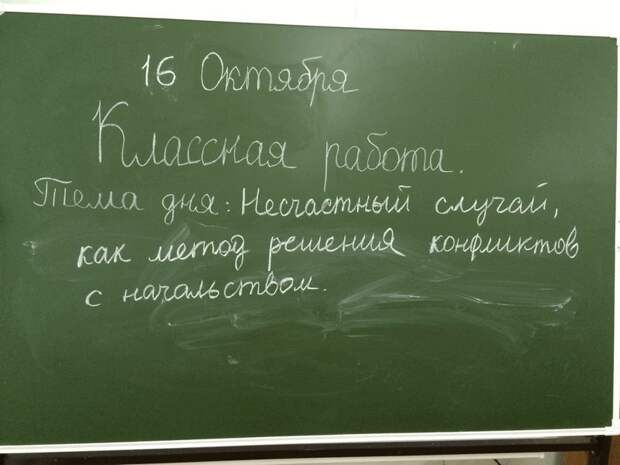 16 Октября
Классная работа.
Тема дня: Несчастный случай,
как метод решения конфликтов
с начальством.